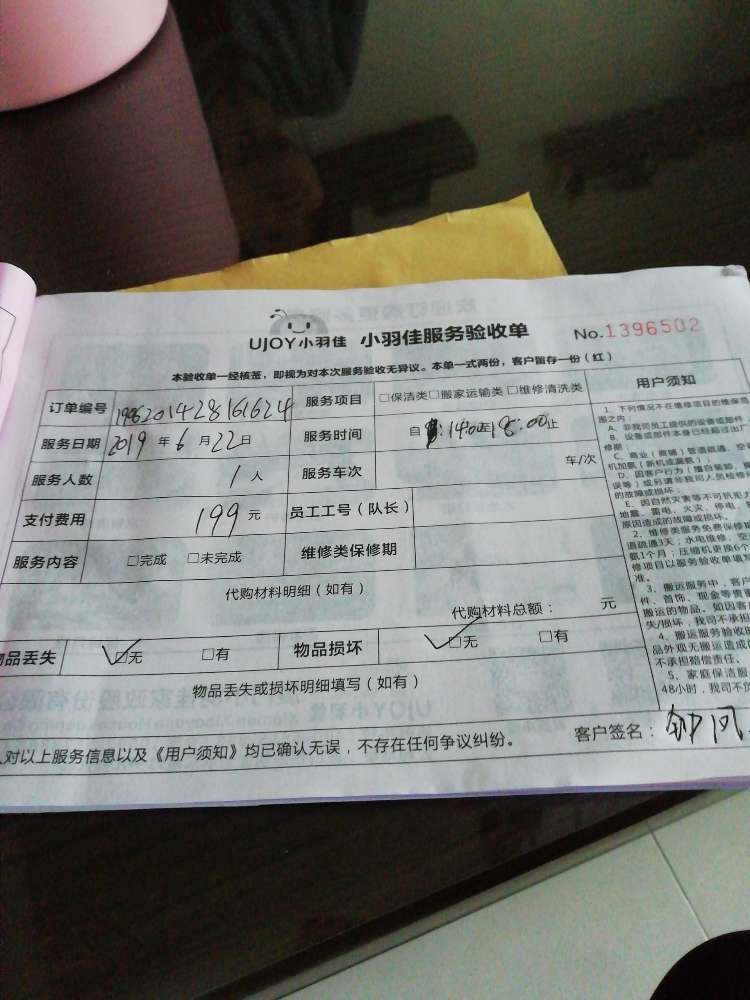 UJOY小羽佳 小羽佳服务验收单 No.1396502
本验收单一经核签，即视为对本次服务验收无异议。本单一式两份，客户留存一份（红）
订单编号 198201428161624 服务项目 □保洁类□搬家运输类□维修清洗类 用户须知
服务日期 2019 年 6 月 22 日 服务时间 自 14:00至18:00止
服务人数 1 人 服务车次 车/次
支付费用 199 元 员工工号（队长）
服务内容 □完成 □未完成 维修类保修期
代购材料明细（如有）
代购材料总额： 元
物品丢失 ☑无 □有 物品损坏 ☑无 □有
物品丢失或损坏明细填写（如有）
人对以上服务信息以及《用户须知》均已确认无误，不存在任何争议纠纷。 客户签名：
1、下列情况不在维修项目的维保范
围之内
A、非我司员工提供的设备或部件
B、设备或部件本身已经超过出厂
修期
C、商业（商铺）管道疏通、空
机加氨（新机或漏氨）
D、因客户行为（擅自
误等）或另请非我司人员检修
的故障或损坏
E、因自然灾害等不可抗
地震、雷电、火灾、停电、
原因造成的故障或损坏。
2、维修类服务免费保修
道疏通3天，水电维修、空
氨1个月；压缩机更换6个
修项目以服务验收单填写
准。
3、搬运服务中，客户
件、首饰、现金等贵重
搬运的物品。如因客
失/损坏，我司不承担
4、搬运服务验收
品外观无搬运造成
不承担赔偿责任。
5、家庭保洁服
48小时，我司不负